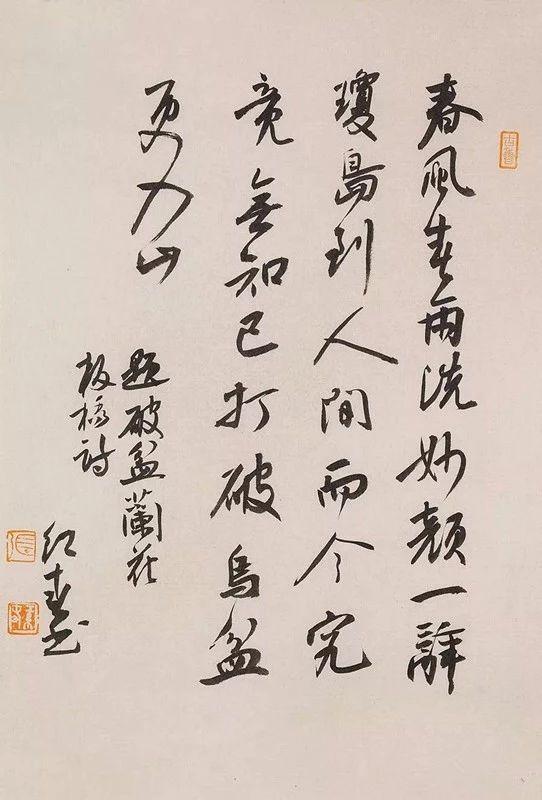 春風春雨洗妙顔一辭
瓊島到人間而今究
竟無知己打破烏盆
更入山
題破盆蘭花
板橋詩
红春书